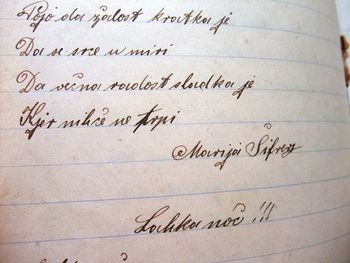 Pojo da žalost kratka je
Da se srce umiri
Da večna radost sladka je
Kjer nihče ne trpi
Marija Šifrez
Lahka noč !!!